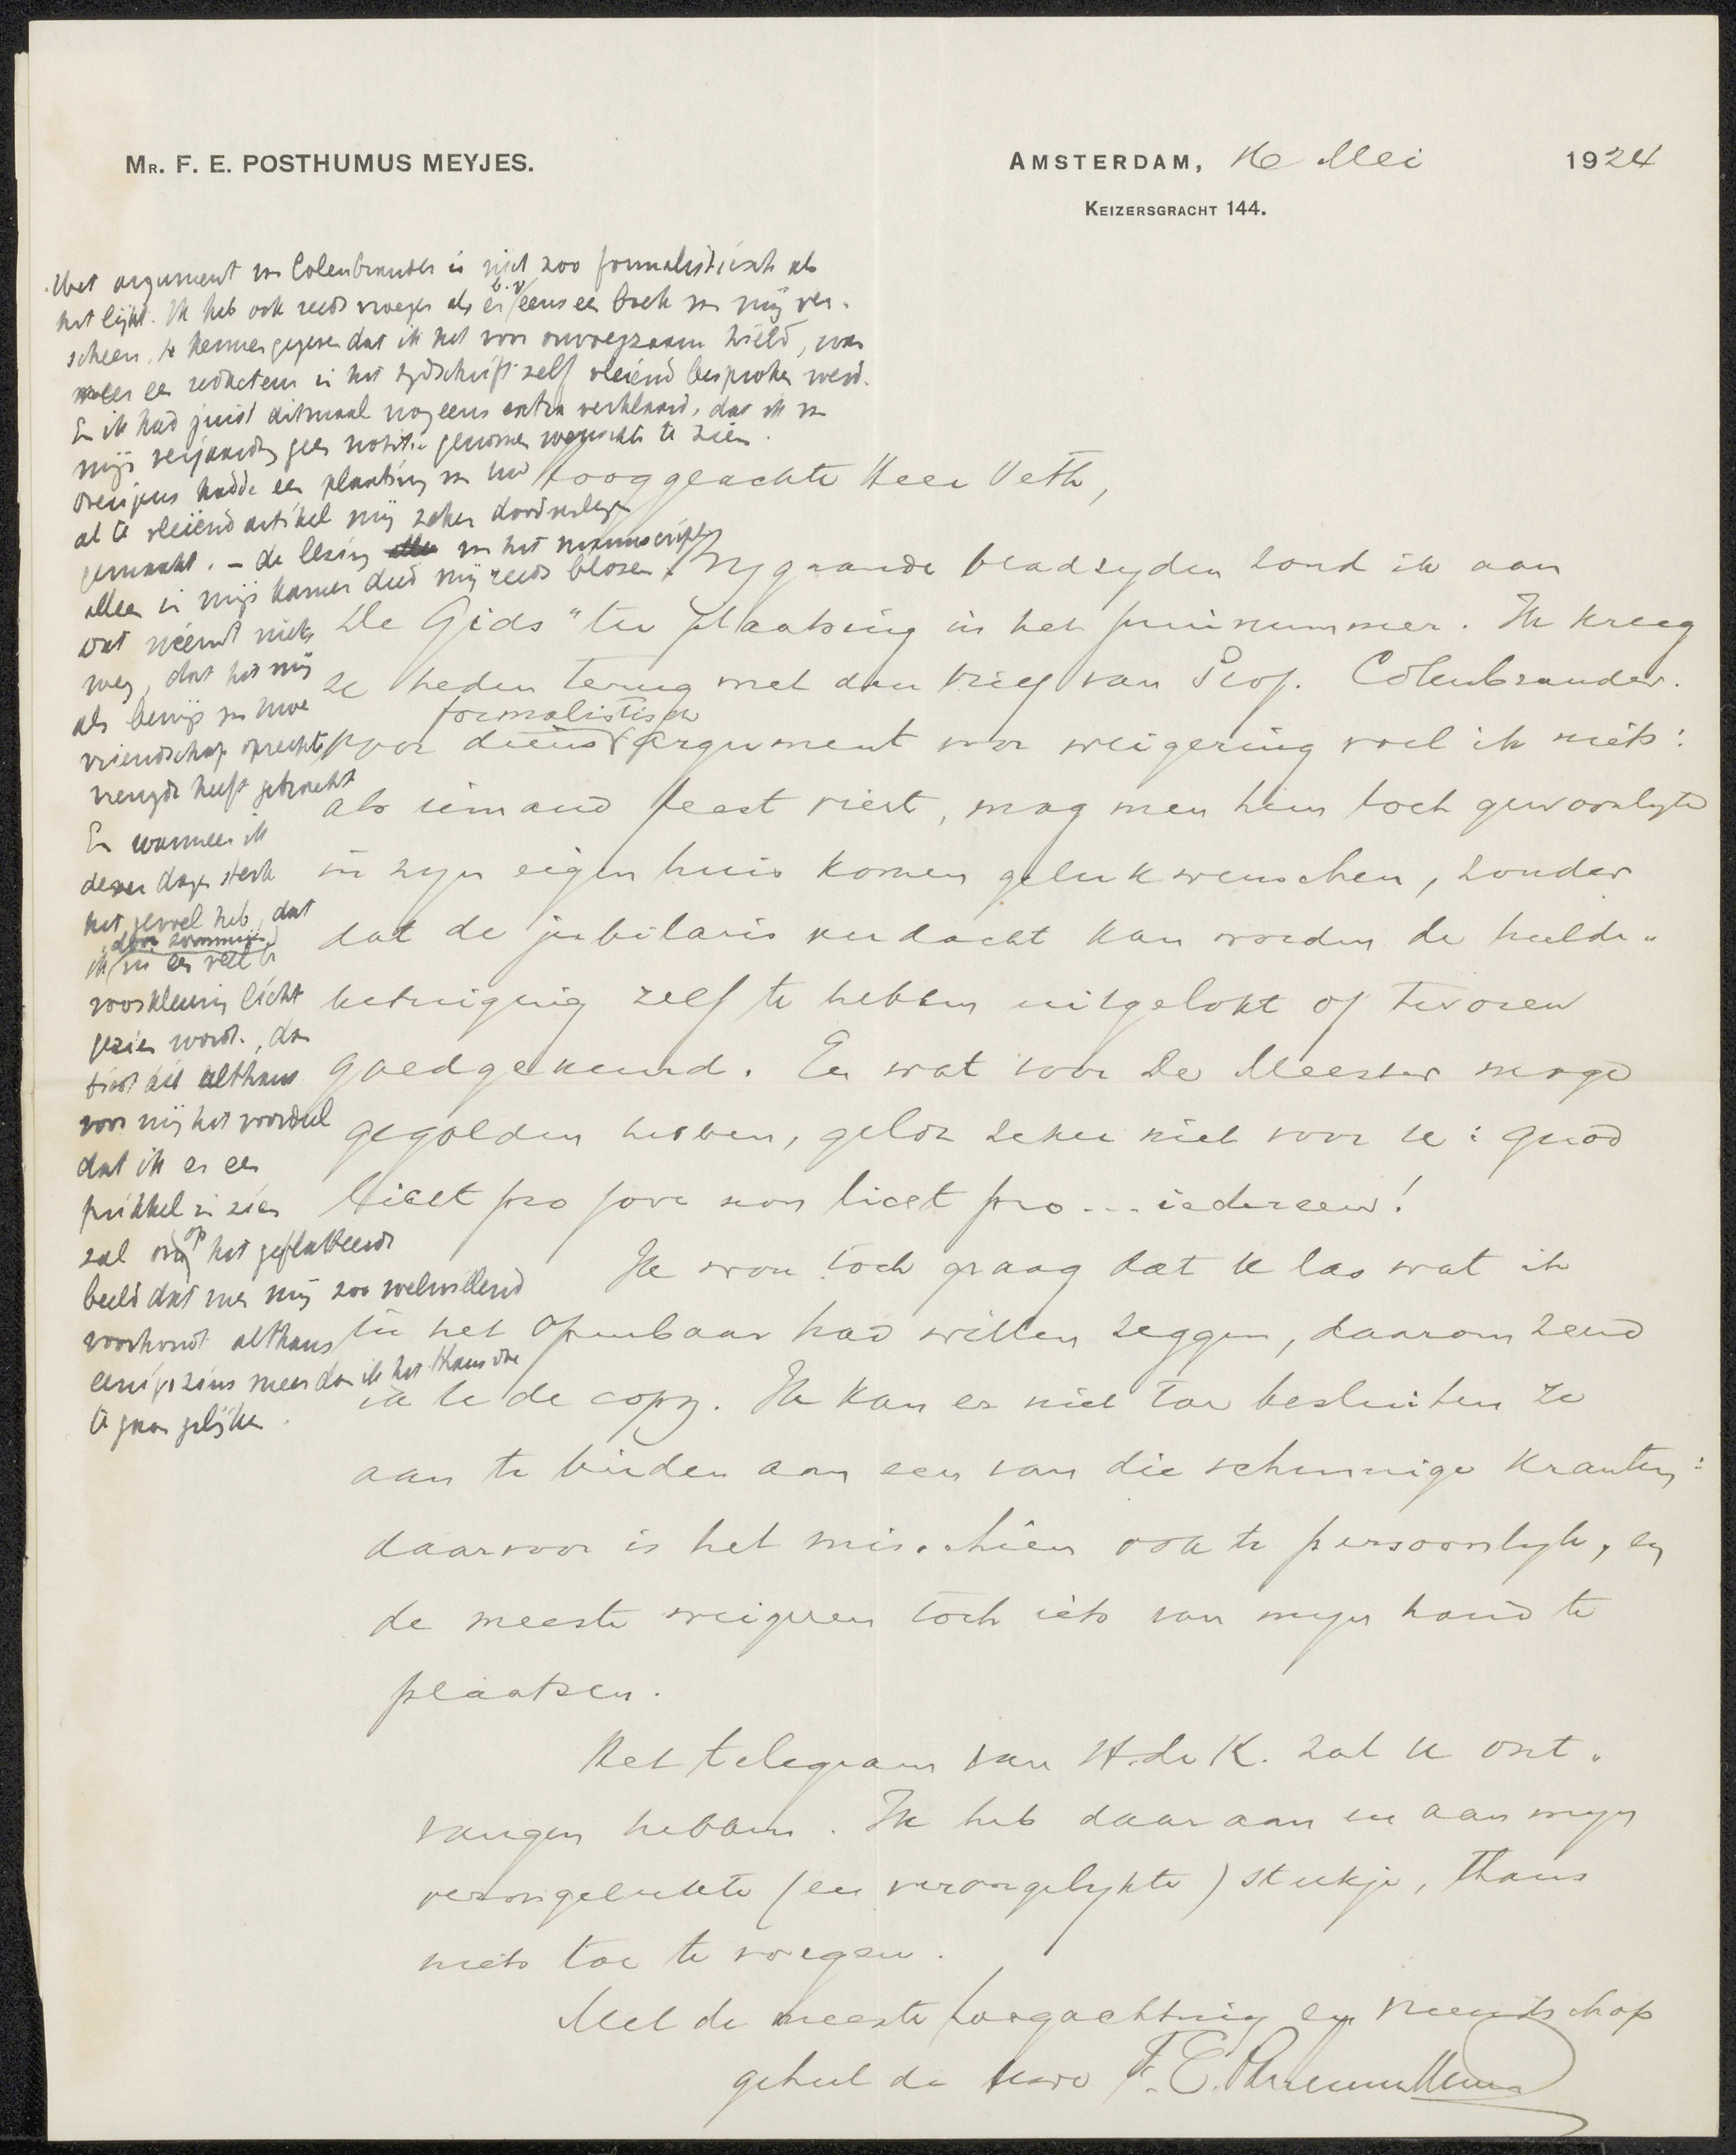 Mr. F. E. POSTHUMUS MEYJES.
AMSTERDAM, 16 Mei 1924
KEIZERSGRACHT 144.
Het argument van Colenbrander is niet zoo formalistisch als
het lijkt. Ik heb ook reeds vroeger als er b.v. eens een boek van mij ver-
scheen, te kennen gegeven dat ik het voor onvoegzaam hield, wan
neer een redacteur in het tijdschrift zelf vleiend besproken werd.
En ik had juist ditmaal nog eens extra verklaard, dat ik van
mijn verjaardag geen notitie genomen wenschte te zien.
Overigens hadde een plaatsing van uw
al te vleiend artikel mij zeker doodverlegen
gemaakt. – de lezing van het manuscript
alleen in mijn kamer deed mij reeds blozen.
Dat neemt niet
weg, dat het mij
als bewijs van Uwe
vriendschap oprechte
vreugde heeft gebracht
En wanneer ik
dezer dagen sterk
het gevoel heb, dat
ik door sommigen in een veel te
rooskleurig licht
gezien wordt, dan
heeft dit althans
voor mij het voordeel
dat ik er een
prikkel in zien
zal om op het geflatteerde
beeld dat men mij zoo welwillend
voorhoudt althans
eenigszins meer dan ik het thans doe
te gaan gelijken.
Hooggeachte Heer Veth,
Bijgaande bladzyden zond ik aan
"De Gids" ter plaatsing in het Juninummer. Ik kreeg
ze heden terug met den brief van Prof. Colenbrander.
Voor diens formalistisch argument voor weigering voel ik niets:
als iemand feest viert, mag men hem toch gewoonlyk
in zyn eigen huis komen gelukwenschen, zonder
dat de jubilaris verdacht kan worden de hulde-
betuiging zelf te hebben uitgelokt of tevoren
goedgekeurd. En wat voor De Meester moge
gegolden hebben, geldt zeker niet voor U: quod
licet pro Jove non licet pro... iedereen!
Ik wou toch graag dat U las wat ik
in het openbaar had willen zeggen, daarom zend
ik U de copy. Ik kan er niet toe besluiten ze
aan te bieden aan een van die schunnige kranten:
daarvoor is het misschien ook te persoonlyk, en
de meeste weigeren toch iets van myn hand te
plaatsen.
Het telegram van H. de K. zal U ont-
vangen hebben. Ik heb daaraan en aan myn
verongelukte (en verongelykte) stukje, thans
niets toe te voegen.
Met de meeste hoogachting en vriendschap
geheel de Uwe F. E. Posthumus Meyjes